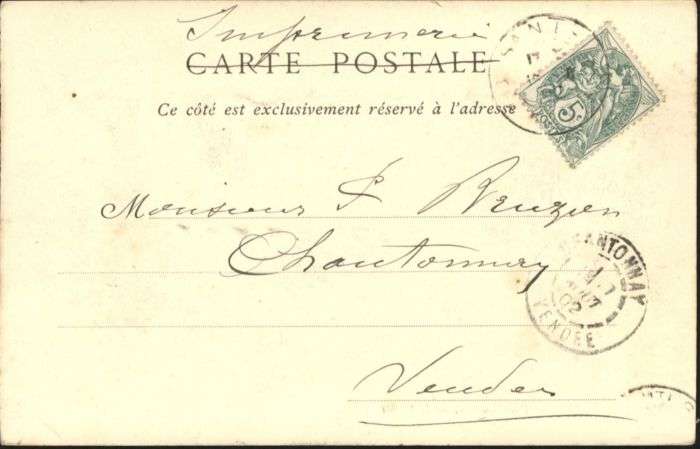 Imprimerie
CARTE POSTALE
Ce côté est exclusivement réservé à l'adresse
5
Monsieur
Chantonnay
CHANTONNAY
02
VENDÉE
Vendée